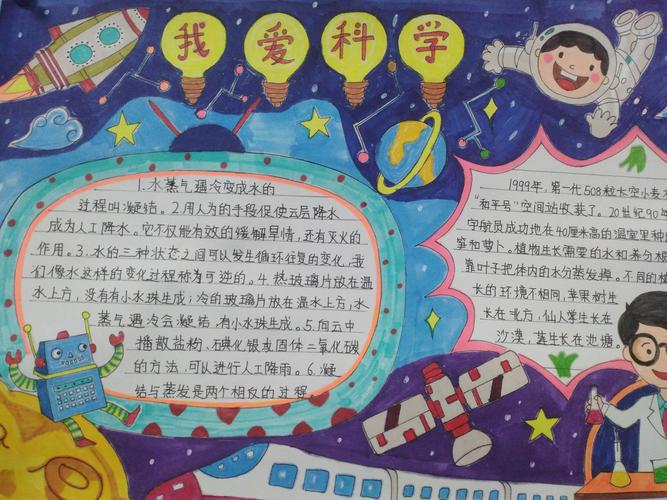 我爱科学
1.水蒸气遇冷变成水的
过程叫凝结。2.用人为的手段促使云层降水
成为人工降水。它不仅能有效的缓解旱情,还有灭火的
作用。3.水的三种状态之间可以发生循环往复的变化,我
们像水这样的变化过程称为可逆的。4.热玻璃片放在温
水上方,没有有小水珠生成;冷的玻璃片放在温水上方,水
蒸气遇冷会凝结,有小水珠生成。5.向云中
播散盐粉、碘化银或固体二氧化碳
的方法,可以进行人工降雨。6.凝
结与蒸发是两个相仪的过程
1999年,第一代508粒长空小麦
"和平号"空间站收获了。20世纪90
宇航员成功地在40厘米高的温室里种
和萝卜。植物生长需要的水和养分
靠叶子把体内的水分蒸发掉。不同的
长的环境不相同,苹果树生
长在北方,仙人掌生长在
沙漠,莲生长在池塘。